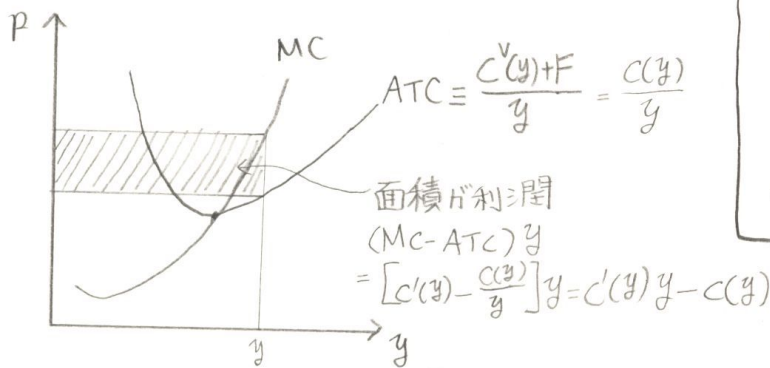 P
MC
ATC ≡ (C^v(y)+F)/y = C(y)/y
面積が利潤
(MC-ATC) y
= [C'(y) - C(y)/y] y = C'(y) y - C(y)
y
y